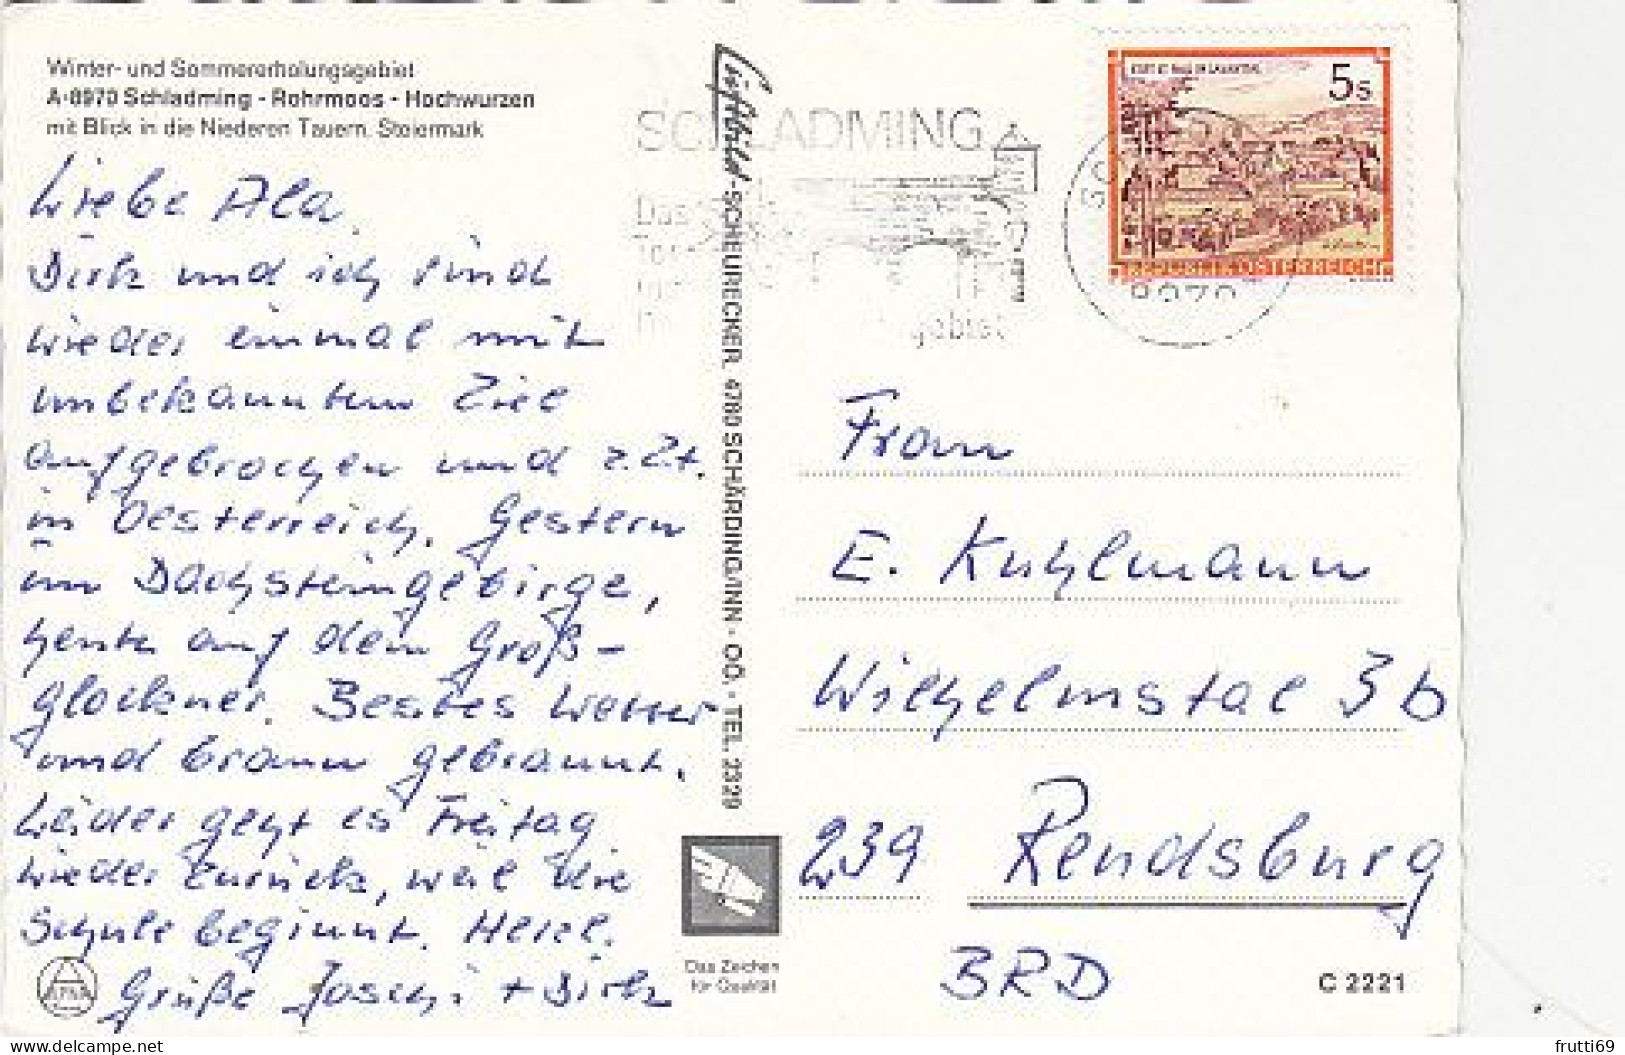 Winter- und Sommererholungsgebiet
A-8970 Schladming - Rohrmoos - Hochwurzen
mit Blick in die Niederen Tauern, Steiermark
Liebe Ala,
Dirk und ich sind
wieder einmal mit
unbekanntem Ziel
aufgebrochen und z.Zt.
in Oesterreich. Gestern
im Dachsteingebirge,
heute auf dem Groß-
glockner. Bestes Wetter
und braun gebrannt.
Leider geht es Freitag
wieder zurück, weil die
Schule beginnt. Herzl.
Grüße Joschi + Dirk
ALPINA
Luftbild-SCHEURECKER, 4780 SCHÄRDING/INN - OÖ. - TEL. 2329
Das Zeichen
für Qualität
SCHLADMING
Das
gebiet
5s
REPUBLIK ÖSTERREICH
8970
Frau
E. Kuhlmann
Wilhelmstal 3b
239 Rendsburg
BRD
C 2221
delcampe.net
frutti69